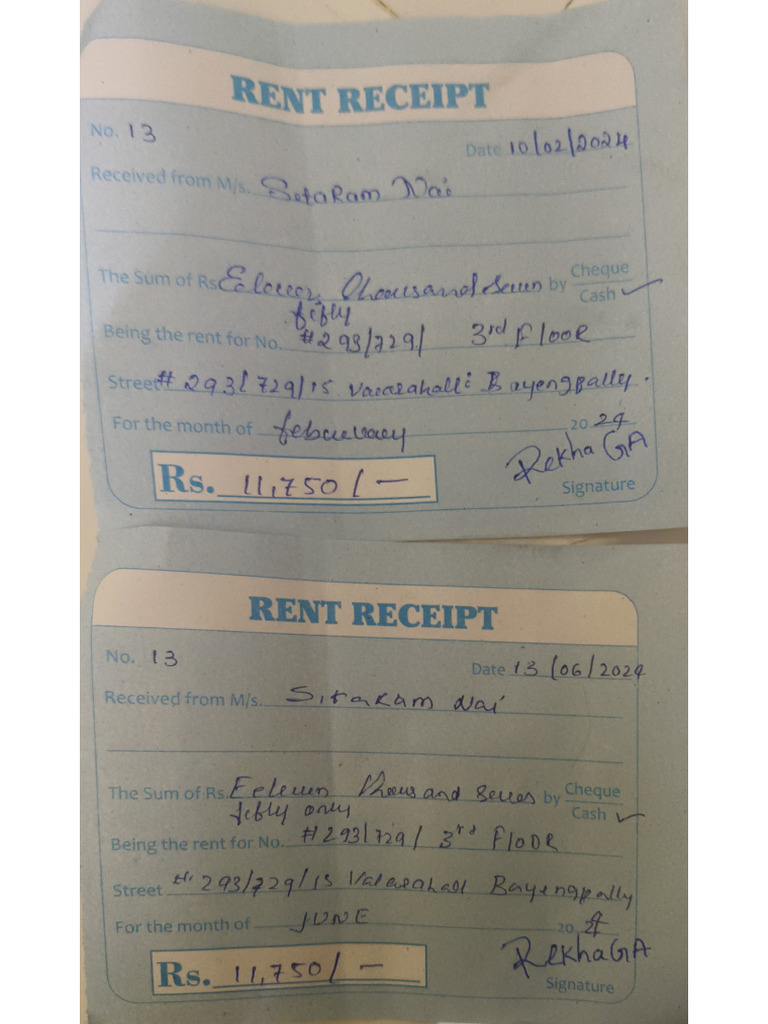 RENT RECEIPT
No. 13
Date 10/02/2024
Received from M/s. Sitaram Nai
The Sum of Rs. Eelever Thousand seven by Cheque
Cash ✓
fifly
Being the rent for No. #293/729/ 3rd Floor
Street # 293/729/15 Varasahalli Bayengpally.
For the month of february 2024
RekhaGA
Rs. 11,750/-
Signature
RENT RECEIPT
No. 13
Date 13/06/2024
Received from M/s. Sitaram Nai
The Sum of Rs. Eeleven Thousand seven by Cheque
Cash ✓
fifly only
Being the rent for No. #293/729/ 3rd Floor
Street #293/729/15 Varasahalli Bayengpally
For the month of JUNE 20 24
RekhaGA
Rs. 11,750/-
Signature